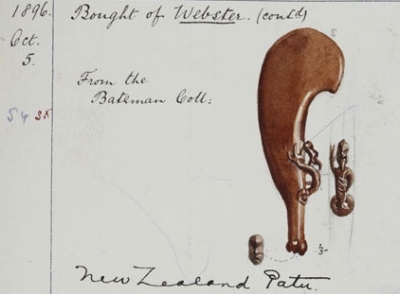 1896. Bought of Webster. (contd)
Oct.
5.
From the
Bateman Coll:
54 SR
2/5
New Zealand Patu.